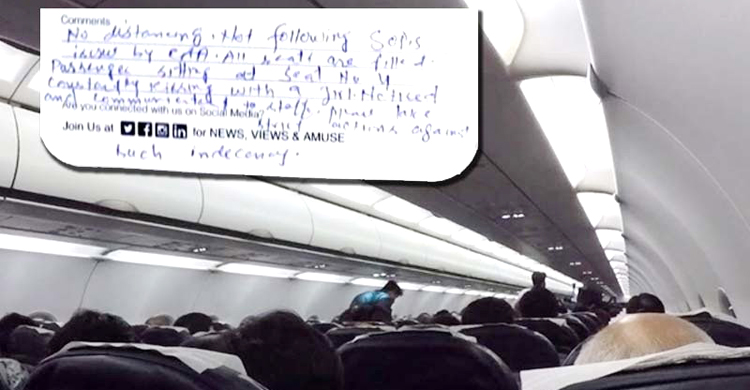 Comments
No distancing. Not following SOP.s
issued by CAA. All seats are filled.
Passenger sitting at Seat No 4
constantly kissing with a Girl. Noticed
and communicated to staff. Please take
Are you connected with us on Social Media?
strict actions against
Join Us at for NEWS, VIEWS & AMUSE
such indecency.